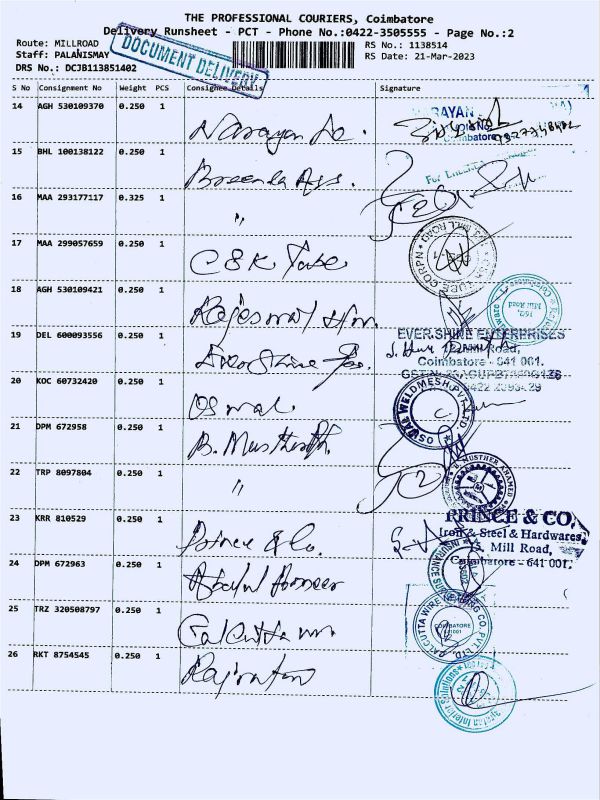 THE PROFESSIONAL COURIERS, Coimbatore
Delivery Runsheet - PCT - Phone No.:0422-3505555 - Page No.:2
Route: MILLROAD
RS No.: 1138514
Staff: PALANISMAY
RS Date: 21-Mar-2023
DRS No.: DCJB113851402
DOCUMENT DELIVERY
S No Consignment No Weight PCS Consignee Details Signature
14 AGH 530109370 0.250 1 Narayan
15 BHL 100138122 0.250 1
16 MAA 293177117 0.325 1 "
17 MAA 299057659 0.250 1 CSK Tube
18 AGH 530109421 0.250 1
19 DEL 600093556 0.250 1 Ever Shine
EVER-SHINE ENTERPRISES
Mill Road,
Coimbatore - 641 001.
20 KOC 60732420 0.250 1 Oswal
OSWAL WELDMESH PVT LTD
21 DPM 672958 0.250 1 B. Musthafa
22 TRP 8097804 0.250 1 "
B. MUSTHER AHAMED
23 KRR 810529 0.250 1 Prince & Co.
PRINCE & CO,
Iron & Steel & Hardwares,
Mill Road,
Coimbatore - 641 001.
24 DPM 672963 0.250 1 Abdul
25 TRZ 320508797 0.250 1 Calcutta
COIMBATORE
641001
26 RKT 8754545 0.250 1